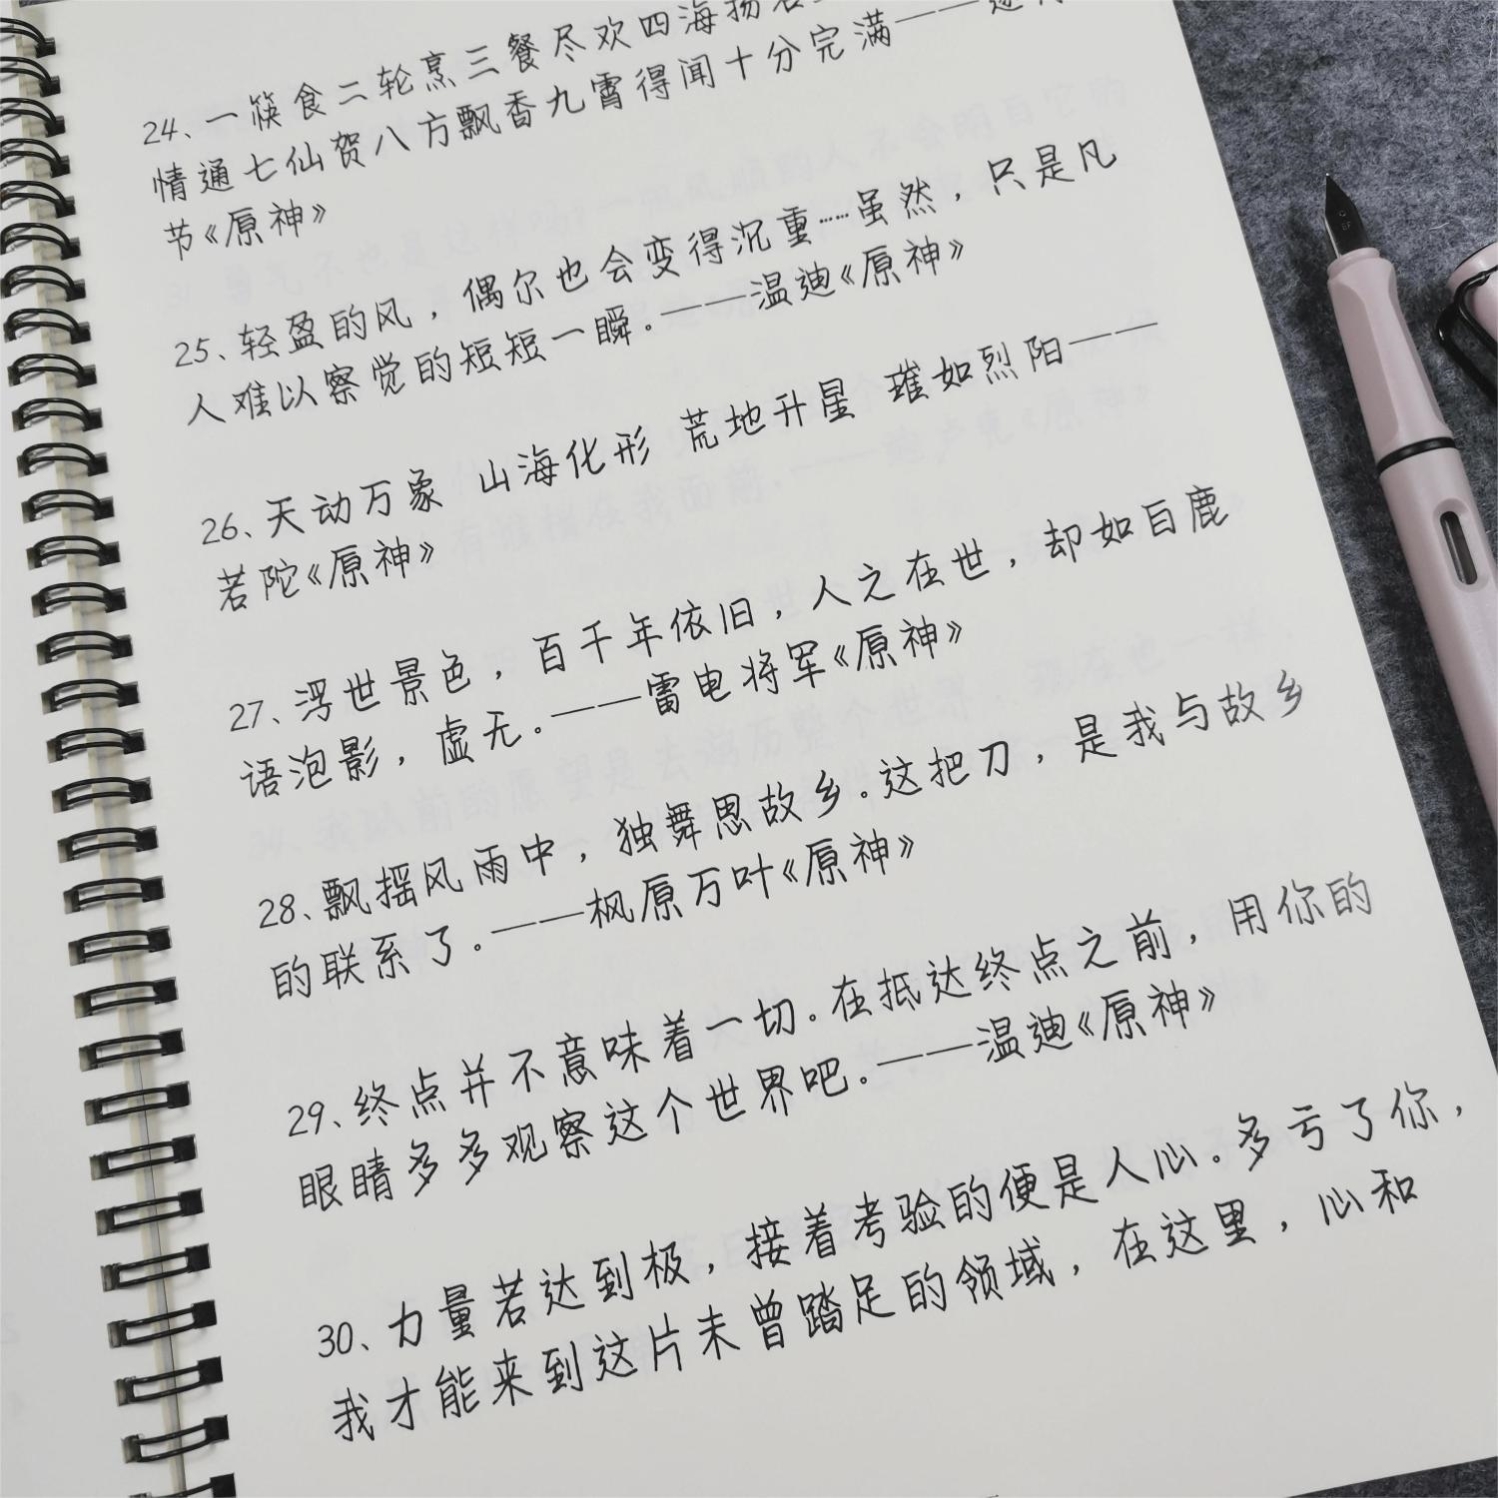 24、一筷食二轮烹三餐尽欢四海扬名
情通七仙贺八方飘香九霄得闻十分完满——逐月
节《原神》
25、轻盈的风，偶尔也会变得沉重……虽然，只是凡
人难以察觉的短短一瞬.——温迪《原神》
26、天动万象 山海化形 荒地升星 璀如烈阳——
若陀《原神》
27、浮世景色，百千年依旧，人之在世，却如白鹿
语泡影，虚无。——雷电将军《原神》
28、飘摇风雨中，独舞思故乡。这把刀，是我与故乡
的联系了。——枫原万叶《原神》
29、终点并不意味着一切.在抵达终点之前，用你的
眼睛多多观察这个世界吧。——温迪《原神》
30、力量若达到极，接着考验的便是人心.多亏了你，
我才能来到这片未曾踏足的领域，在这里，心和